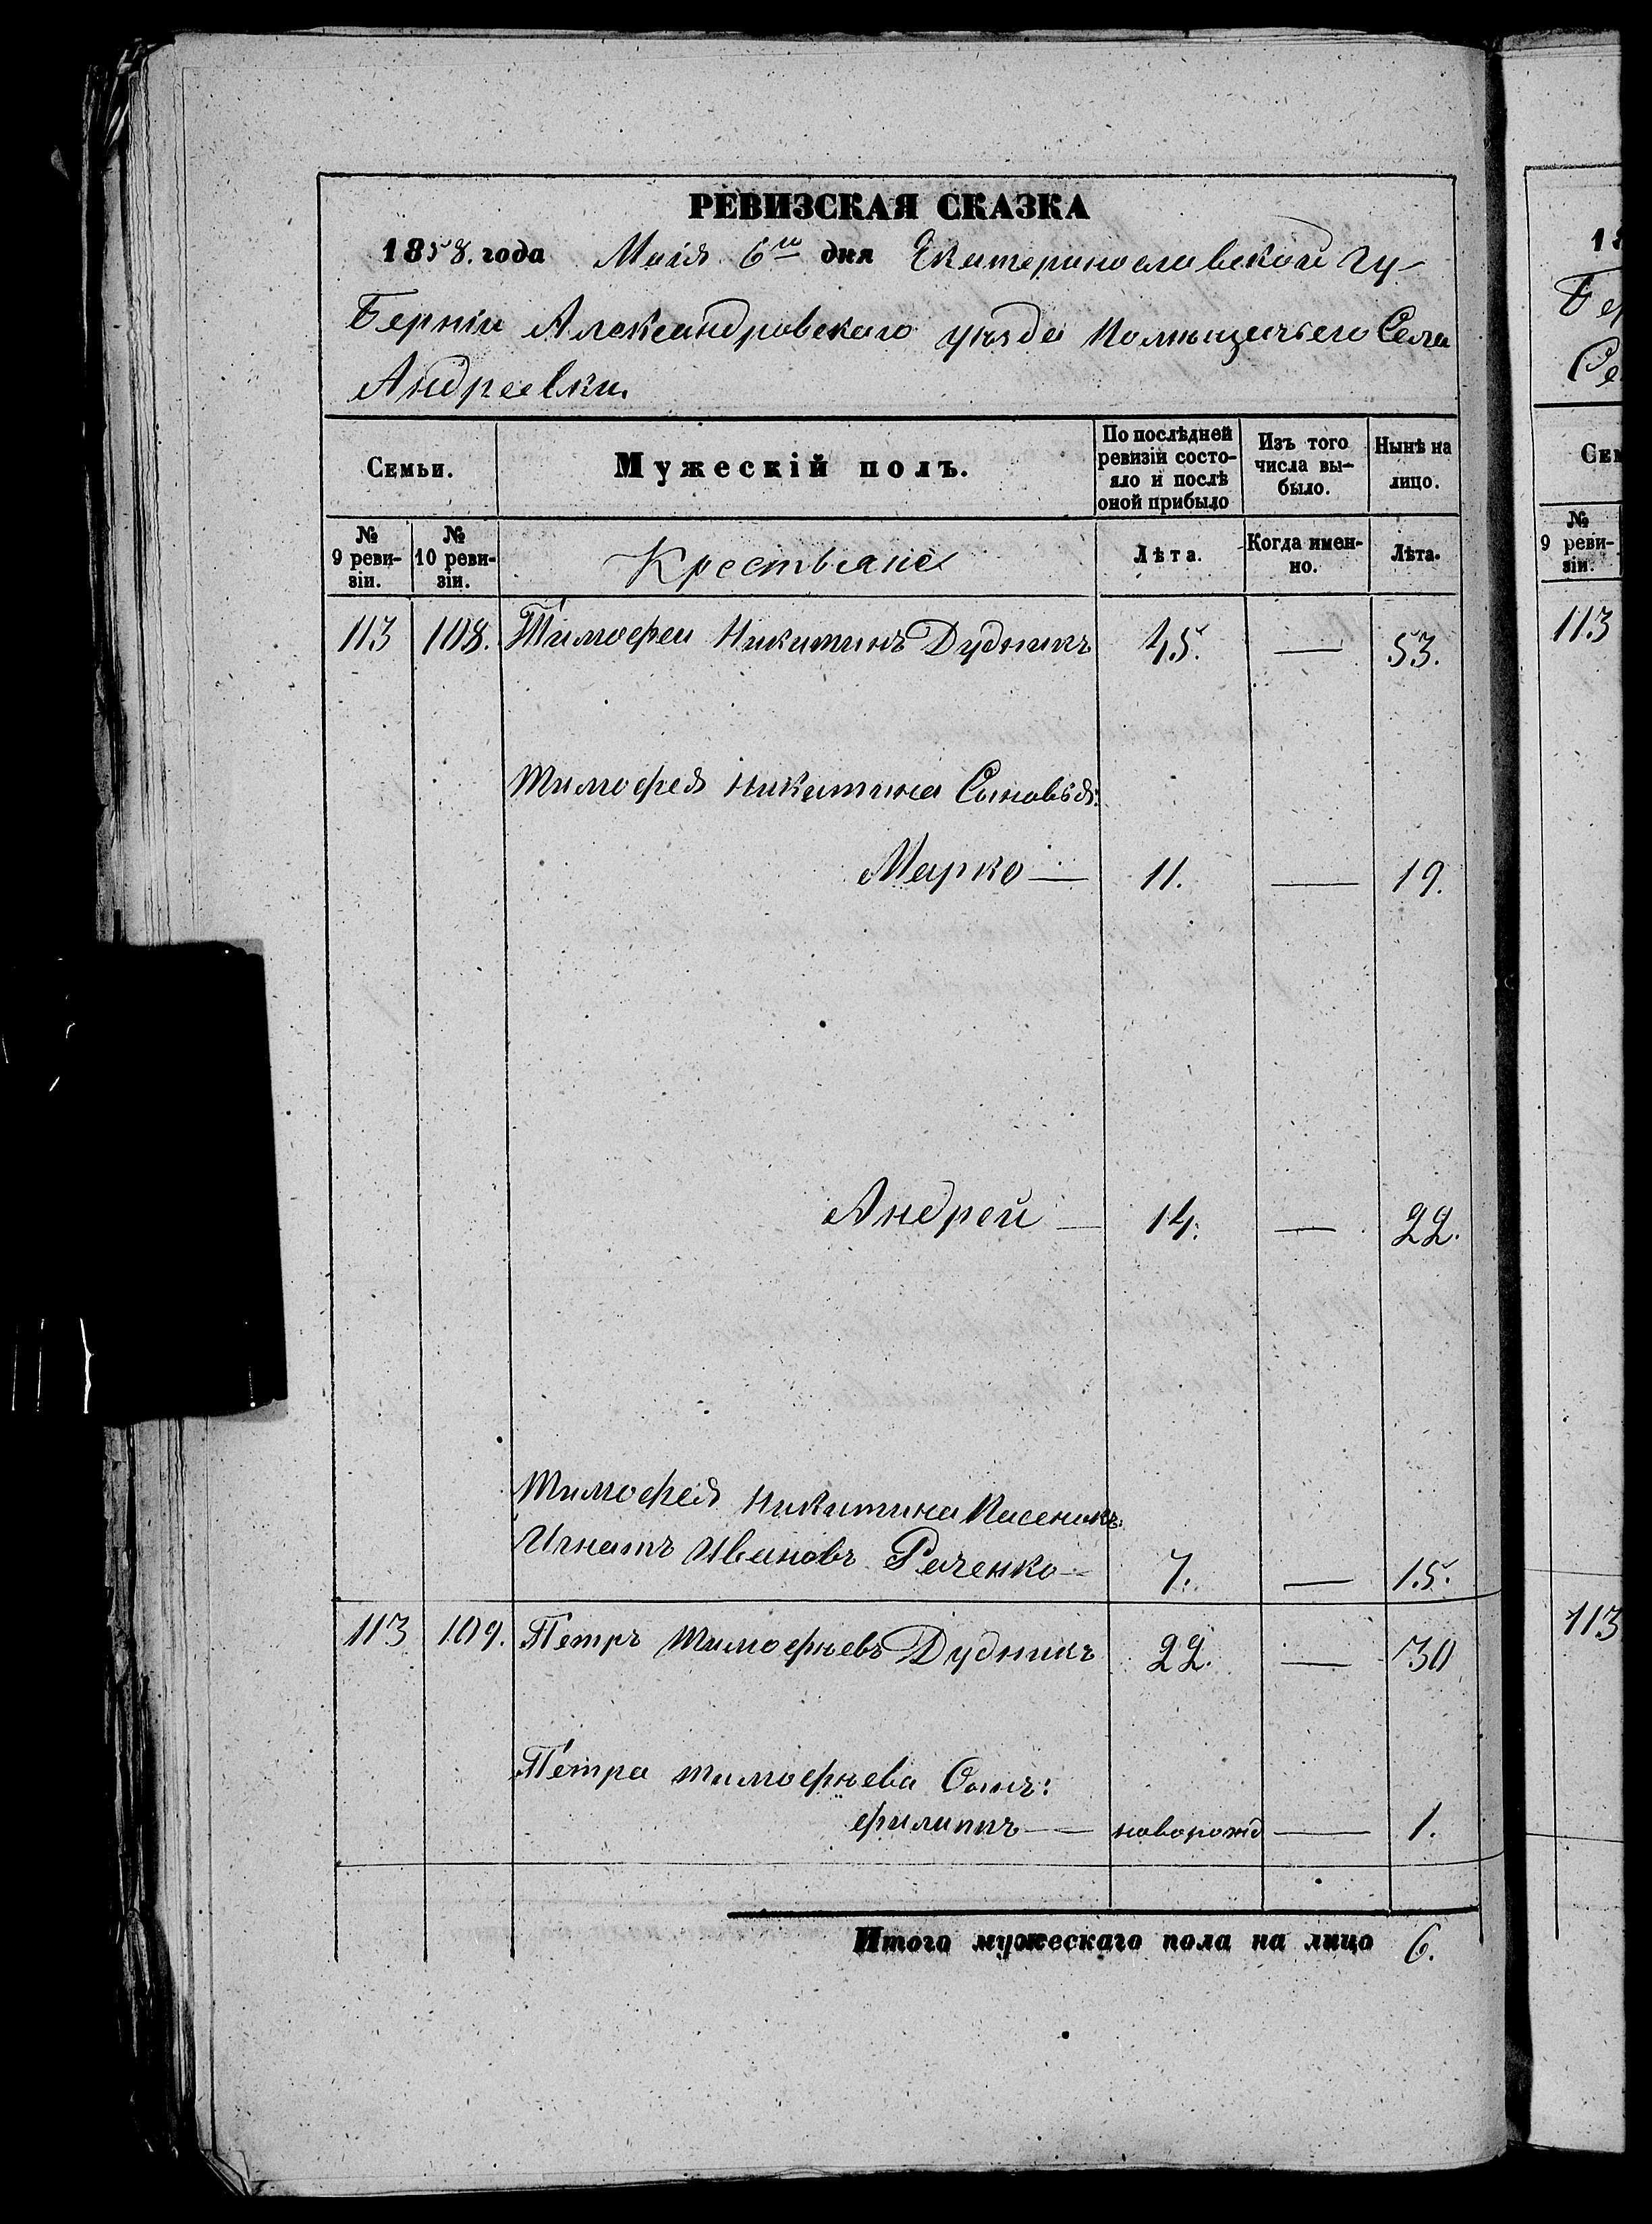 РЕВИЗСКАЯ СКАЗКА
1858. года Маія 6го дня Екатеринославской гу-
Берніи Александровскаго уѣзда помѣщичьего Села
Андреевки
Семьи. Мужескій полъ. По послѣдней ревизіи состо-яло и послѣ оной прибыло Изъ того числа вы-было. Нынѣ на лицо.
№ 9 реви-зіи. № 10 реви-зіи. Крестьяне Лѣта. Когда имен-но. Лѣта.
113 108. Тимофеи Никитинъ Дудникъ 45. — 53.
Тимофея Никитина Сыновья:
Марко — 11. — 19.
Андрей — 14. — 22.
Тимофея Никитина Пасенокъ:
Игнатъ Ивановъ Раченко — 7. — 15.
113 109. Петръ Тимофѣевъ Дудникъ 22. — 30
Петра тимофѣева Сынъ:
филипъ — новорожд — 1.
Итого мужескаго пола на лицо 6.
18
Бер
Се
Сем
№
9 реви-
зіи.
113
113